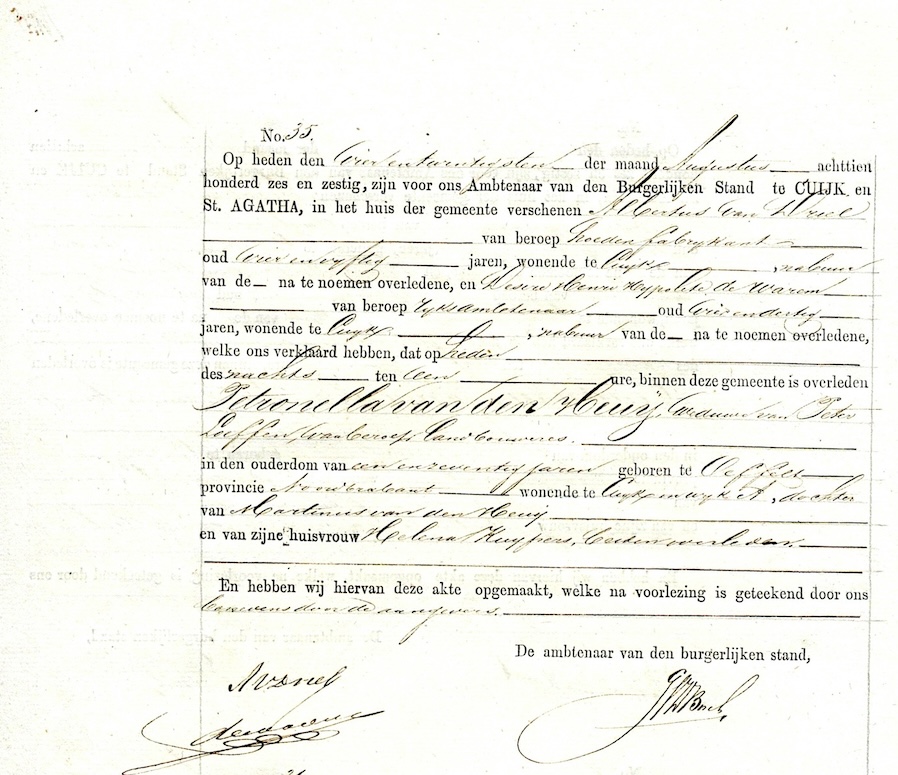 No. 35.
Op heden den Vier en twintigsten der maand Augustus achttien
honderd zes en zestig, zijn voor ons Ambtenaar van den Burgerlijken Stand te CUIJK en
St. AGATHA, in het huis der gemeente verschenen Albertus van Driel
van beroep hoeden fabrykant
oud vier en vyftig jaren, wonende te Cuyk, nabuur
van de na te noemen overledene, en Desire Henri Hypolite de Warem
van beroep Ryksambtenaar oud vier en dertig
jaren, wonende te Cuyk, nabuur van de na te noemen overledene,
welke ons verklaard hebben, dat op heden
des nachts ten een ure, binnen deze gemeente is overleden
Petronella van den Heuy, weduwe van Peter
Luffen, van beroep Landbouweres.
in den ouderdom van een en zeventig jaren geboren te Oeffelt
provincie Noordbrabant wonende te Cuyk en wyk A, dochter
van Martinus van den Heuy
en van zijne huisvrouw Helena Kuypers, beiden overleden.
En hebben wij hiervan deze akte opgemaakt, welke na voorlezing is geteekend door ons
benevens door de aangevers.
De ambtenaar van den burgerlijken stand,